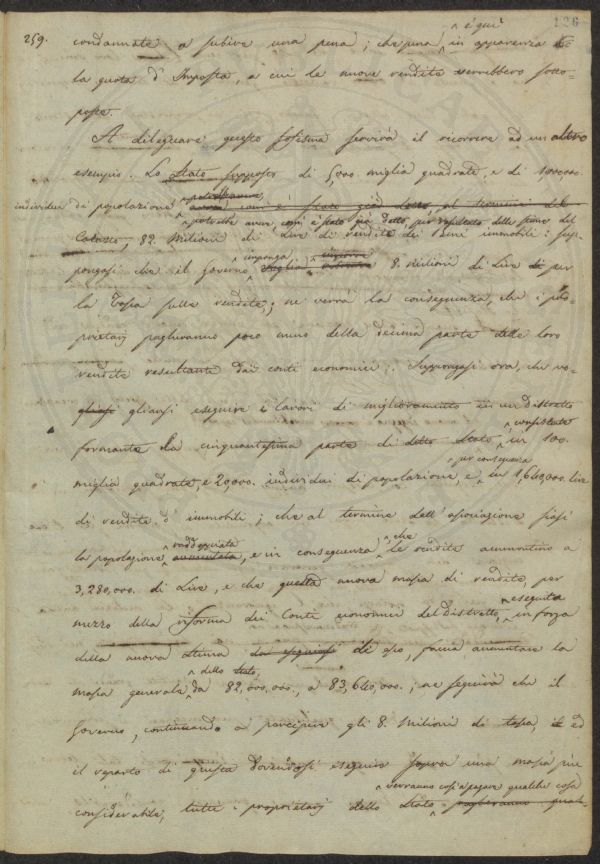 126
259.
condannate a subire una pena; che pena ^ è qui in apparenza
la quota d'Imposta, a cui le nuove rendite verrebbero sotto-
poste.
A dileguare questo sofisma servirà il ricorrere ad un altro
esempio. Lo Stato suppostosi di 5,000 miglia quadrate, e di 1,000,000.
individui di popolazione
potrebbe avere, com'è stato già detto, per risultato della stima del
Catasto, 82. Milioni di Lire di rendite di beni immobili: sup-
pongasi che il Governo imponga 8. Milioni di Lire per
la Tassa sulle rendite; ne verrà la conseguenza, che i pro-
prietarj pagheranno poco meno della decima parte delle loro
rendite resultante dai conti economici. Suppongasi ora, che vo-
gliansi eseguire i lavori di miglioramento in un distretto
formante la cinquantesima parte di detto Stato, consistente in 100.
miglia quadrate, e 20,000. individui di popolazione, e per conseguenza in 1,640,000. lire
di rendite d'immobili; che al termine dell'associazione siasi
la popolazione raddoppiata aumentata, e in conseguenza che le rendite aumentino a
3,280,000. di Lire, e che questa nuova massa di rendite, per
mezzo della riforma dei Conti economici del distretto, eseguita in forza
della nuova stima di esso, faccia aumentare la
massa generale dello Stato da 82,000,000., a 83,640,000.; ne seguirà che il
Governo, continuando a percipere gli 8. Milioni di tassa, ed
il reparto di questa dovendosi eseguire sopra una massa più
considerabile, tutti i proprietarj dello Stato verranno così a pagare qualche cosa